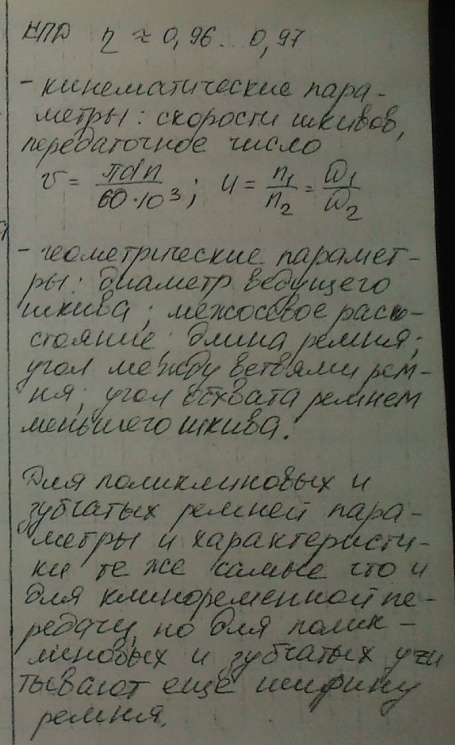 КПД η ≈ 0,96.. 0,97
- кинематические пара-
метры: скорости шкивов,
передаточное число
v = πdn / 60·10³ ; u = n₁/n₂ = ω₁/ω₂
- геометрические парамет-
ры: диаметр ведущего
шкива; межосевое расс-
стояние; длина ремня;
угол между ветвями рем-
ня; угол обхвата ремнем
меньшего шкива.
Для поликлиновых и
зубчатых ремней пара-
метры и характеристи-
ки те же самые что и
для клиноременной пе-
редачи, но для полик-
линовых и зубчатых учи
тывают ещё ширину
ремня.